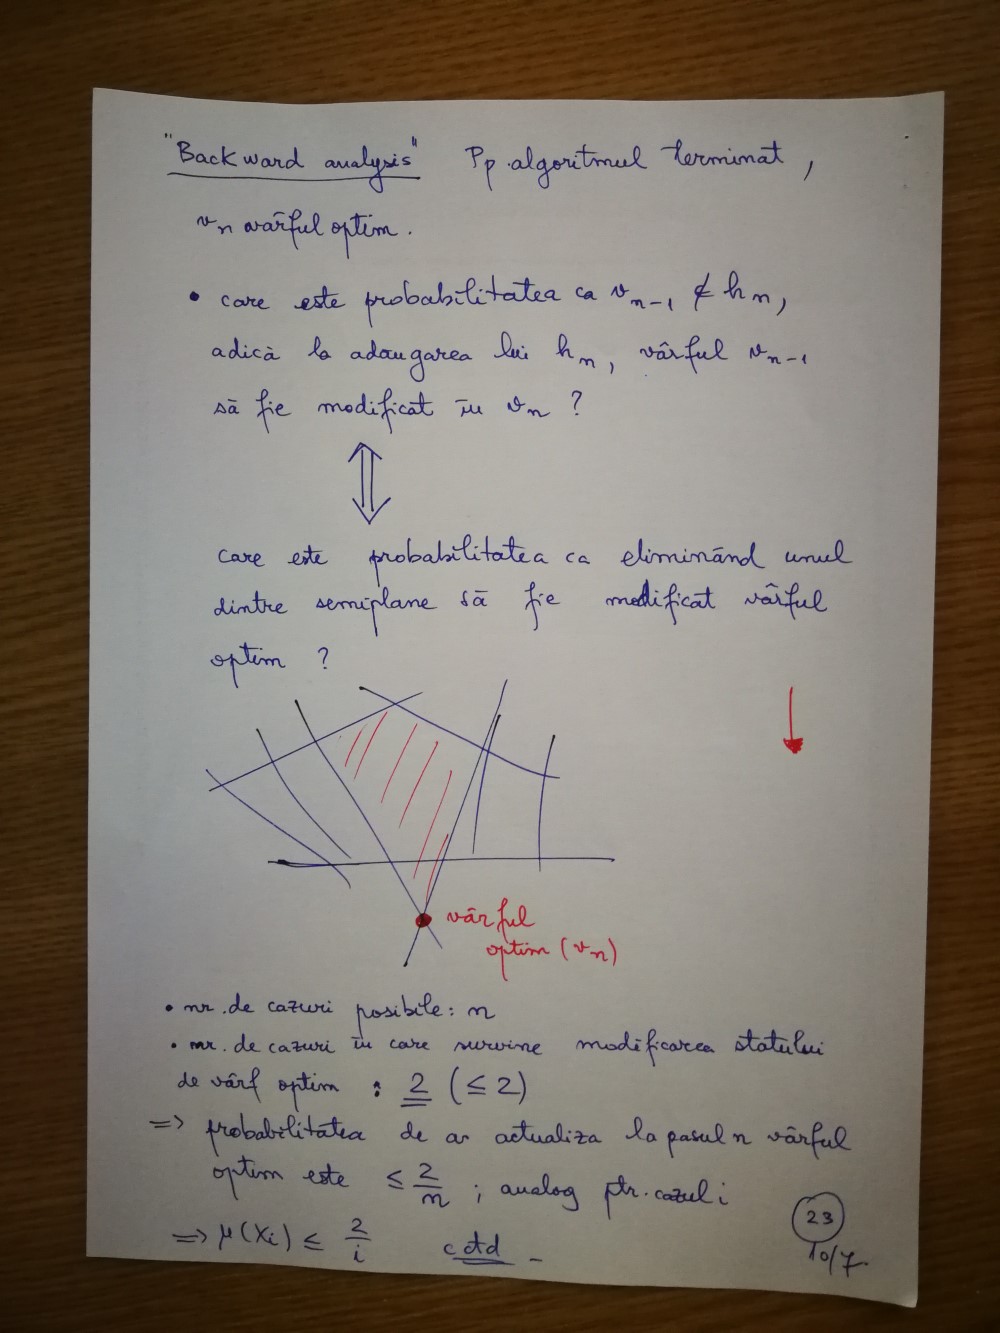 "Backward analysis" Pp. algoritmul terminat,
vₙ vârful optim.
• care este probabilitatea ca vₙ₋₁ ∉ hₙ,
adică la adăugarea lui hₙ, vârful vₙ₋₁
să fie modificat în vₙ ?
⇕
care este probabilitatea ca eliminând unul
dintre semiplane să fie modificat vârful
optim ?
vârful
optim (vₙ)
• nr. de cazuri posibile: n
• nr. de cazuri în care survine modificarea statului
de vârf optim : 2 (≤ 2)
=> probabilitatea de a actualiza la pasul n vârful
optim este ≤ 2/n ; analog ptr. cazul i
=> μ(Xi) ≤ 2/i cctd
23
10/7